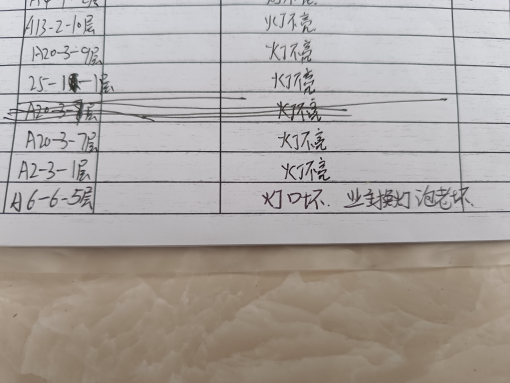 A13-2-10层 灯不亮
A20-3-9层 灯不亮
25-1-1层 灯不亮
A20-3-层 灯不亮
A20-3-7层 灯不亮
A2-3-1层 灯不亮
A6-6-5层 灯口坏. 业主换灯泡老坏.